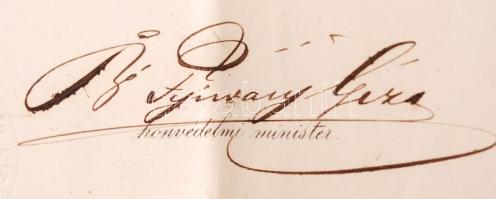 B Fejérváry Géza
honvédelmi minister.